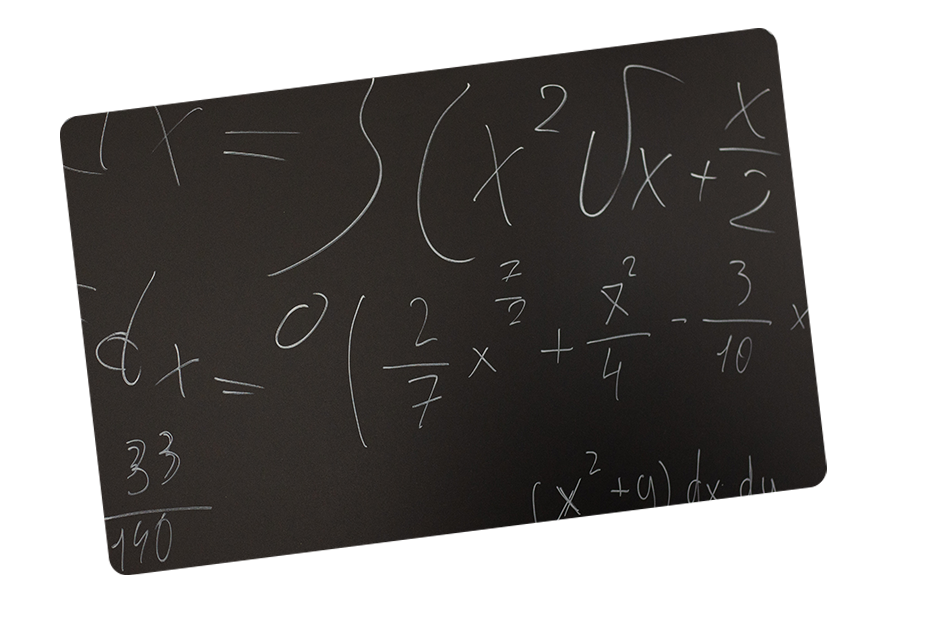 x = ∫ (x² √x + x/2
dx = 0 ( 2/7 x^7/2 + x²/4 - 3/10 x
33/140
(x² + y) dx dy